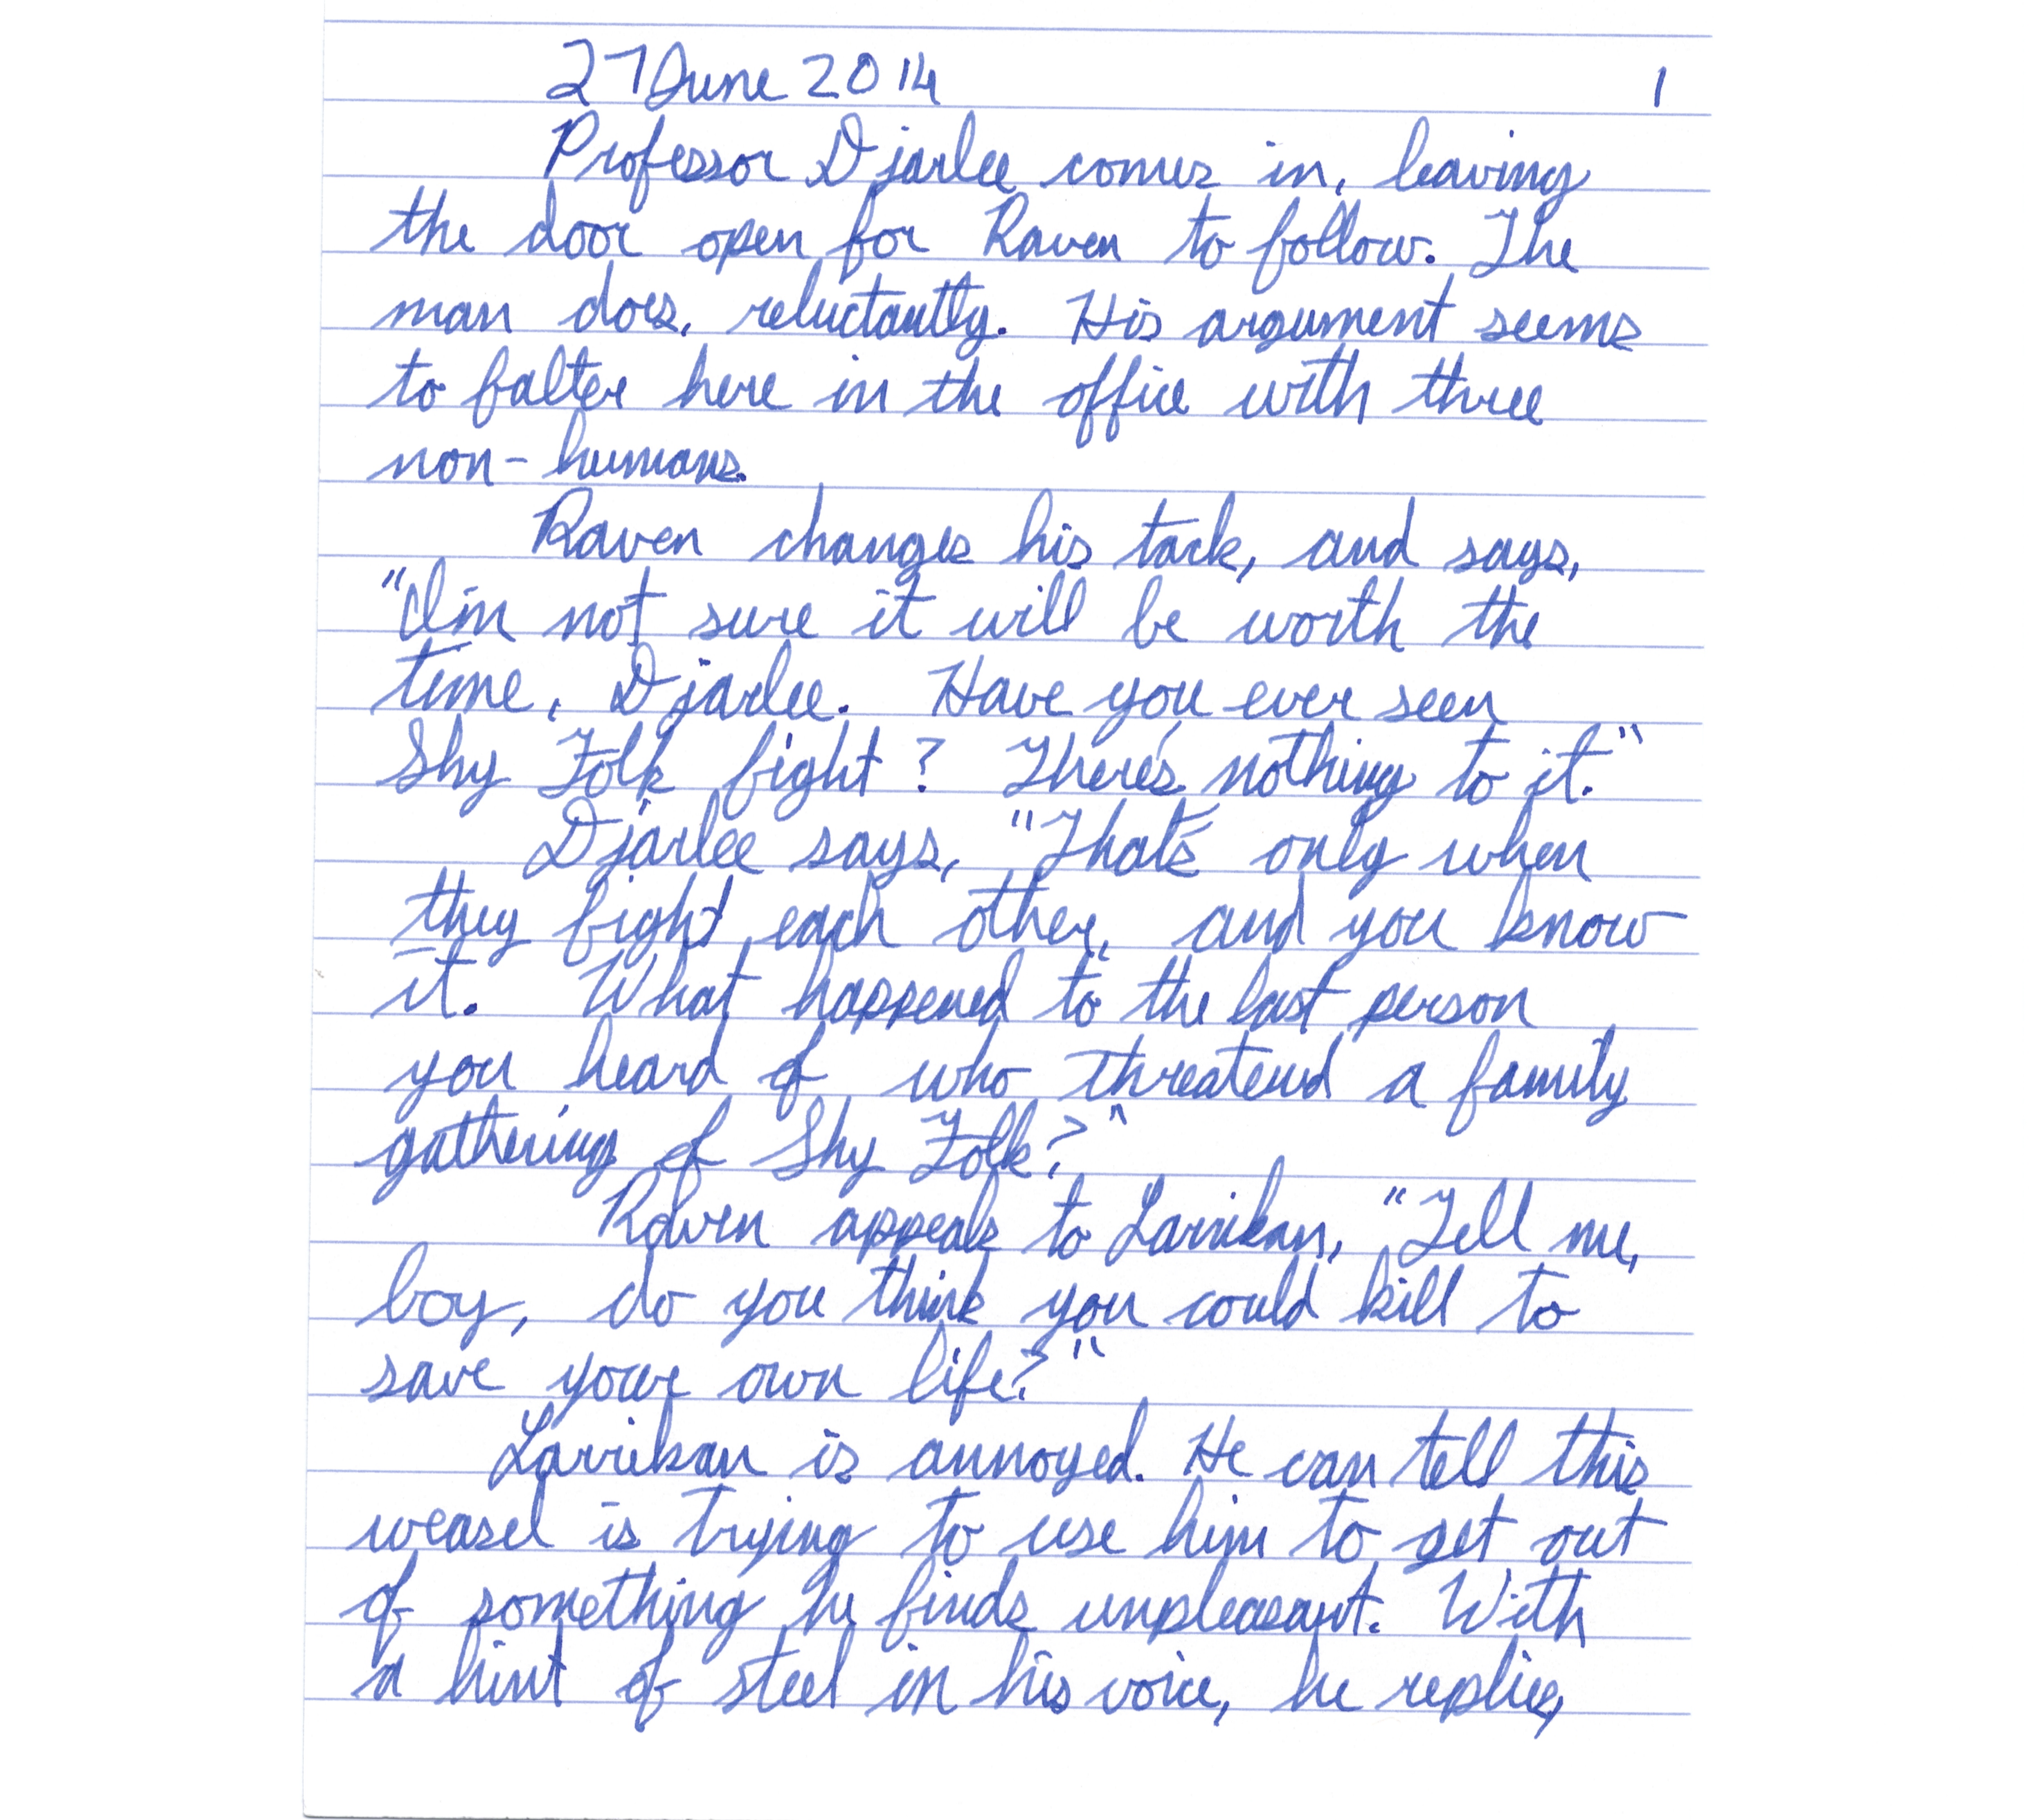 27 June 2014 1
Professor Djarlee comes in, leaving
the door open for Raven to follow. The
man does, reluctantly. His argument seems
to falter here in the office with three
non-humans.
Raven changes his tack, and says,
"I'm not sure it will be worth the
time, Djarlee. Have you ever seen
Shy Folk fight? There's nothing to it."
Djarlee says, "That's only when
they fight each other, and you know
it. What happened to the last person
you heard of who threatend a family
gathering of Shy Folk?"
Raven appeals to Larrikan, "Tell me,
boy, do you think you could kill to
save your own life?"
Larrikan is annoyed. He can tell this
weasel is trying to use him to get out
of something he finds unpleasant. With
a hint of steel in his voice, he replies,